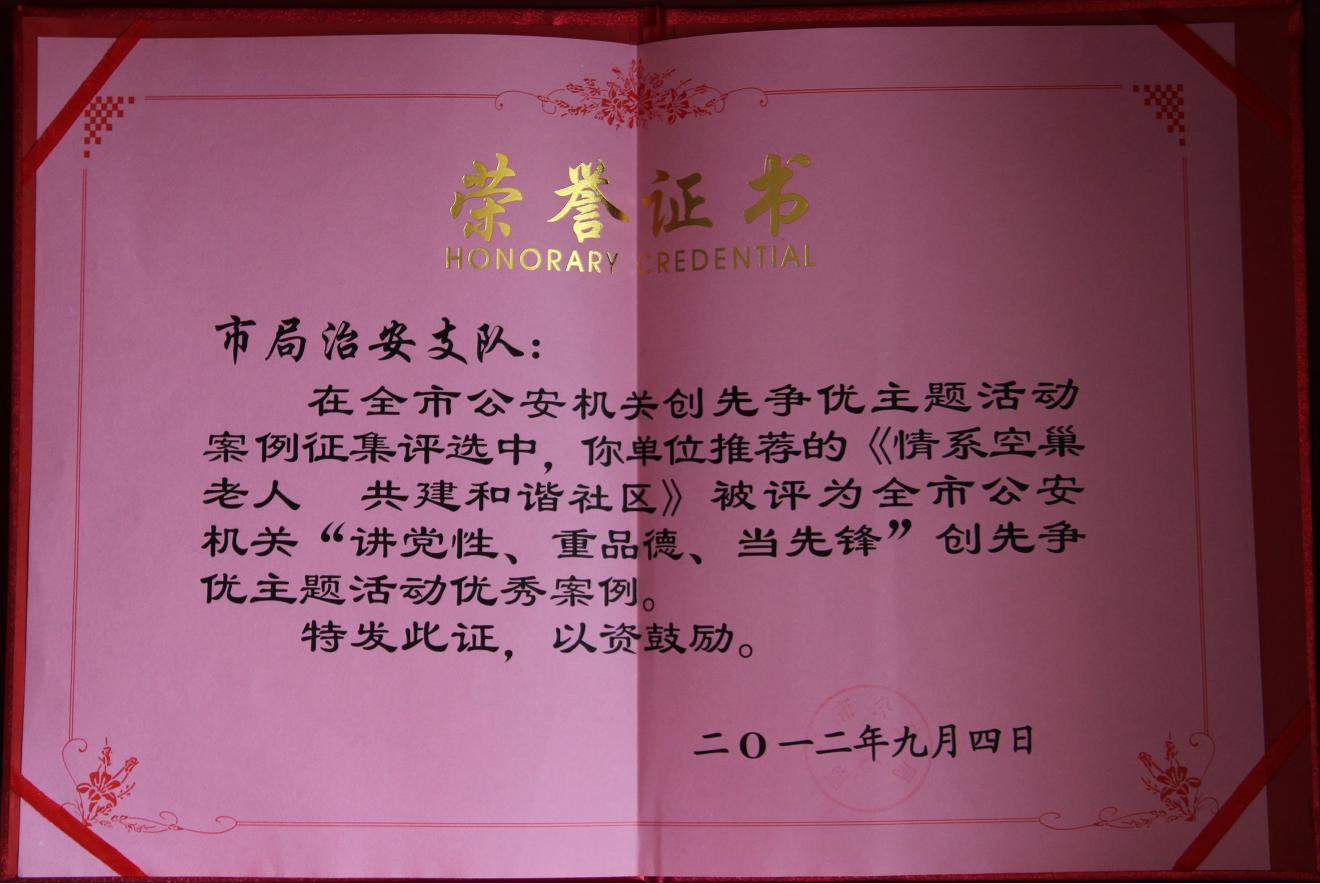 荣誉证书
HONORARY CREDENTIAL
市局治安支队：
在全市公安机关创先争优主题活动
案例征集评选中，你单位推荐的《情系空巢
老人　共建和谐社区》被评为全市公安
机关“讲党性、重品德、当先锋”创先争
优主题活动优秀案例。
特发此证，以资鼓励。
二O一二年九月四日